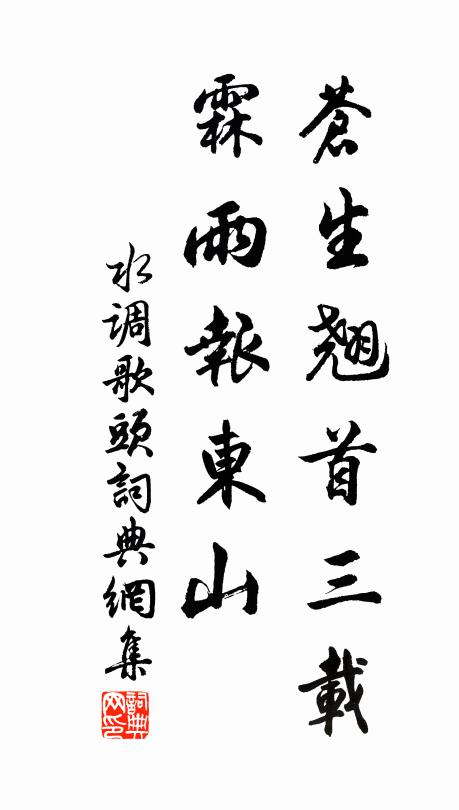 蒼生翹首三載
霖雨報東山
水调歌頭詞典網集
詞典网印